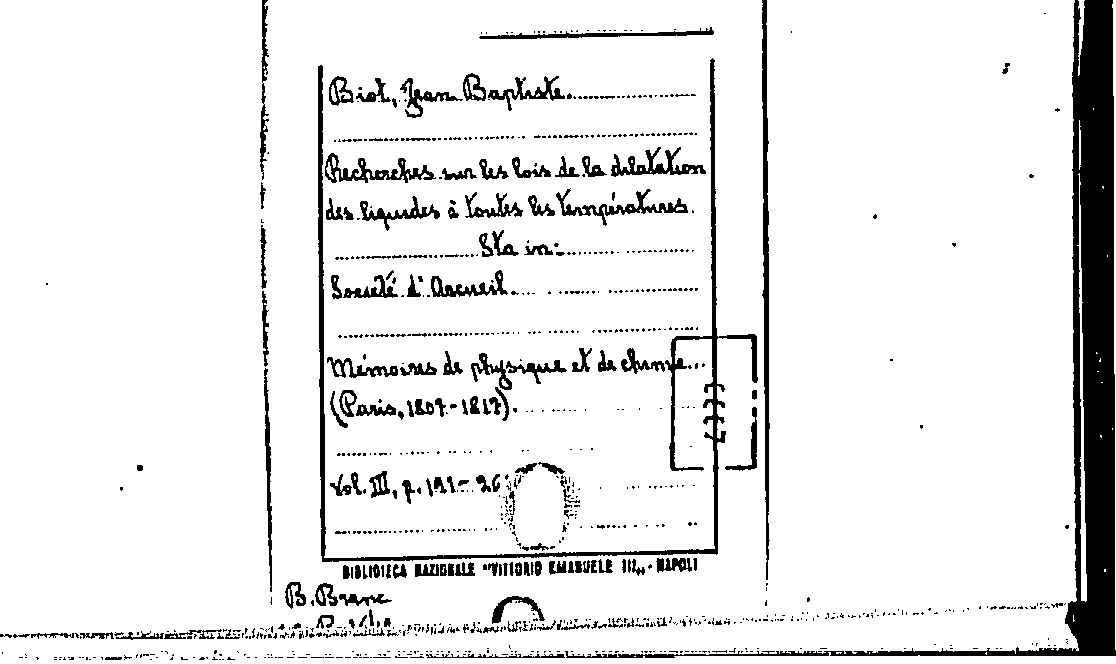 Biot, Jean Baptiste.
Recherches sur les lois de la dilatation
des liquides à toutes les températures.
Sta in:
Société d'Arcueil.
Mémoires de physique et de chimie...
(Paris, 1807-1817).
Vol. III, p. 191-26
BIBLIOTECA NAZIONALE "VITTORIO EMANUELE III„ - NAPOLI
B. Branc